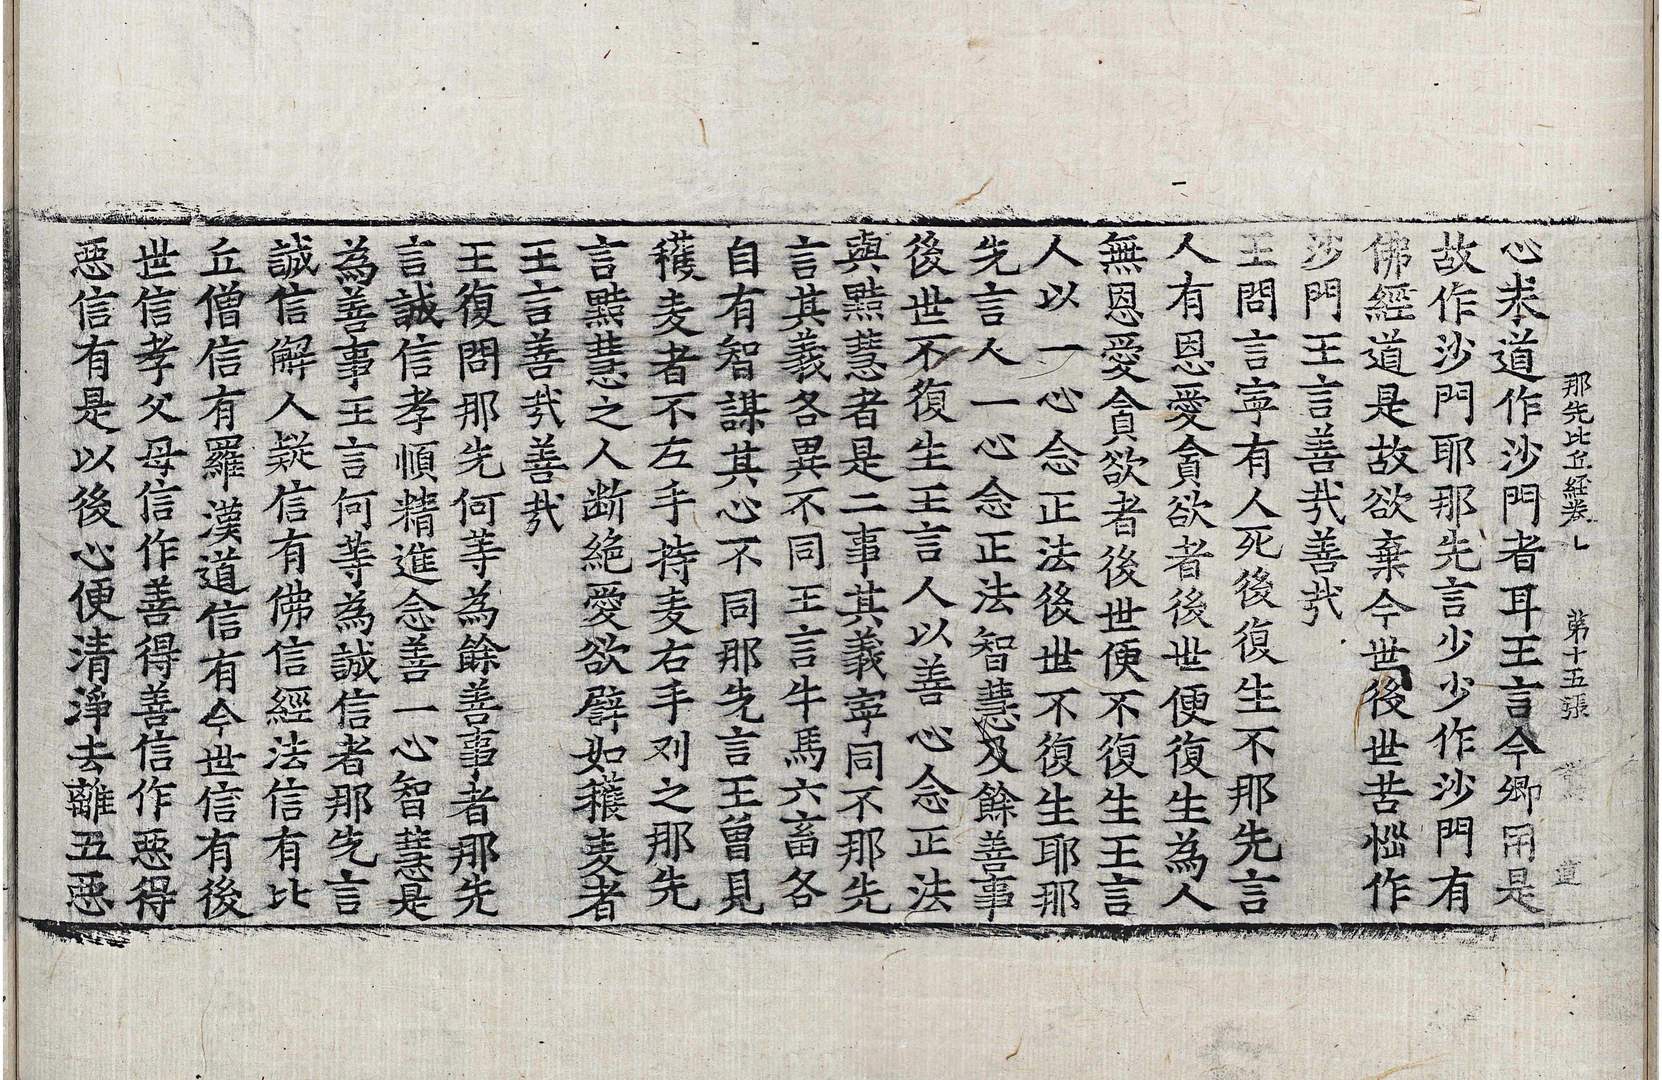 那先比丘經卷上 第十五張
心来道作沙門者耳王言今卿用是
故作沙門耶那先言少少作沙門有
佛經道是故欲棄今世後世苦惱作
沙門王言善㢤善㢤
王問言寧有人死後復生不那先言
人有恩愛貪欲者後世便復生為人
無恩愛貪欲者後世便不復生王言
人以一心念正法後世不復生耶那
先言人一心念正法智慧及餘善事
後世不復生王言人以善心念正法
與黠慧者是二事其義寧同不那先
言其義各異不同王言牛馬六畜各
自有智謀其心不同那先言王曾見
穫麦者不左手持麦右手刈之那先
言黠慧之人断絕愛欲譬如穫麦者
王言善㢤善㢤
王復問那先何等為餘善事者那先
言誠信孝順精進念善一心智慧是
為善事王言何等為誠信者那先言
誠信解人疑信有佛信經法信有比
丘僧信有羅漢道信有今世信有後
世信孝父母信作善得善信作惡得
惡信有是以後心便清淨去離五惡